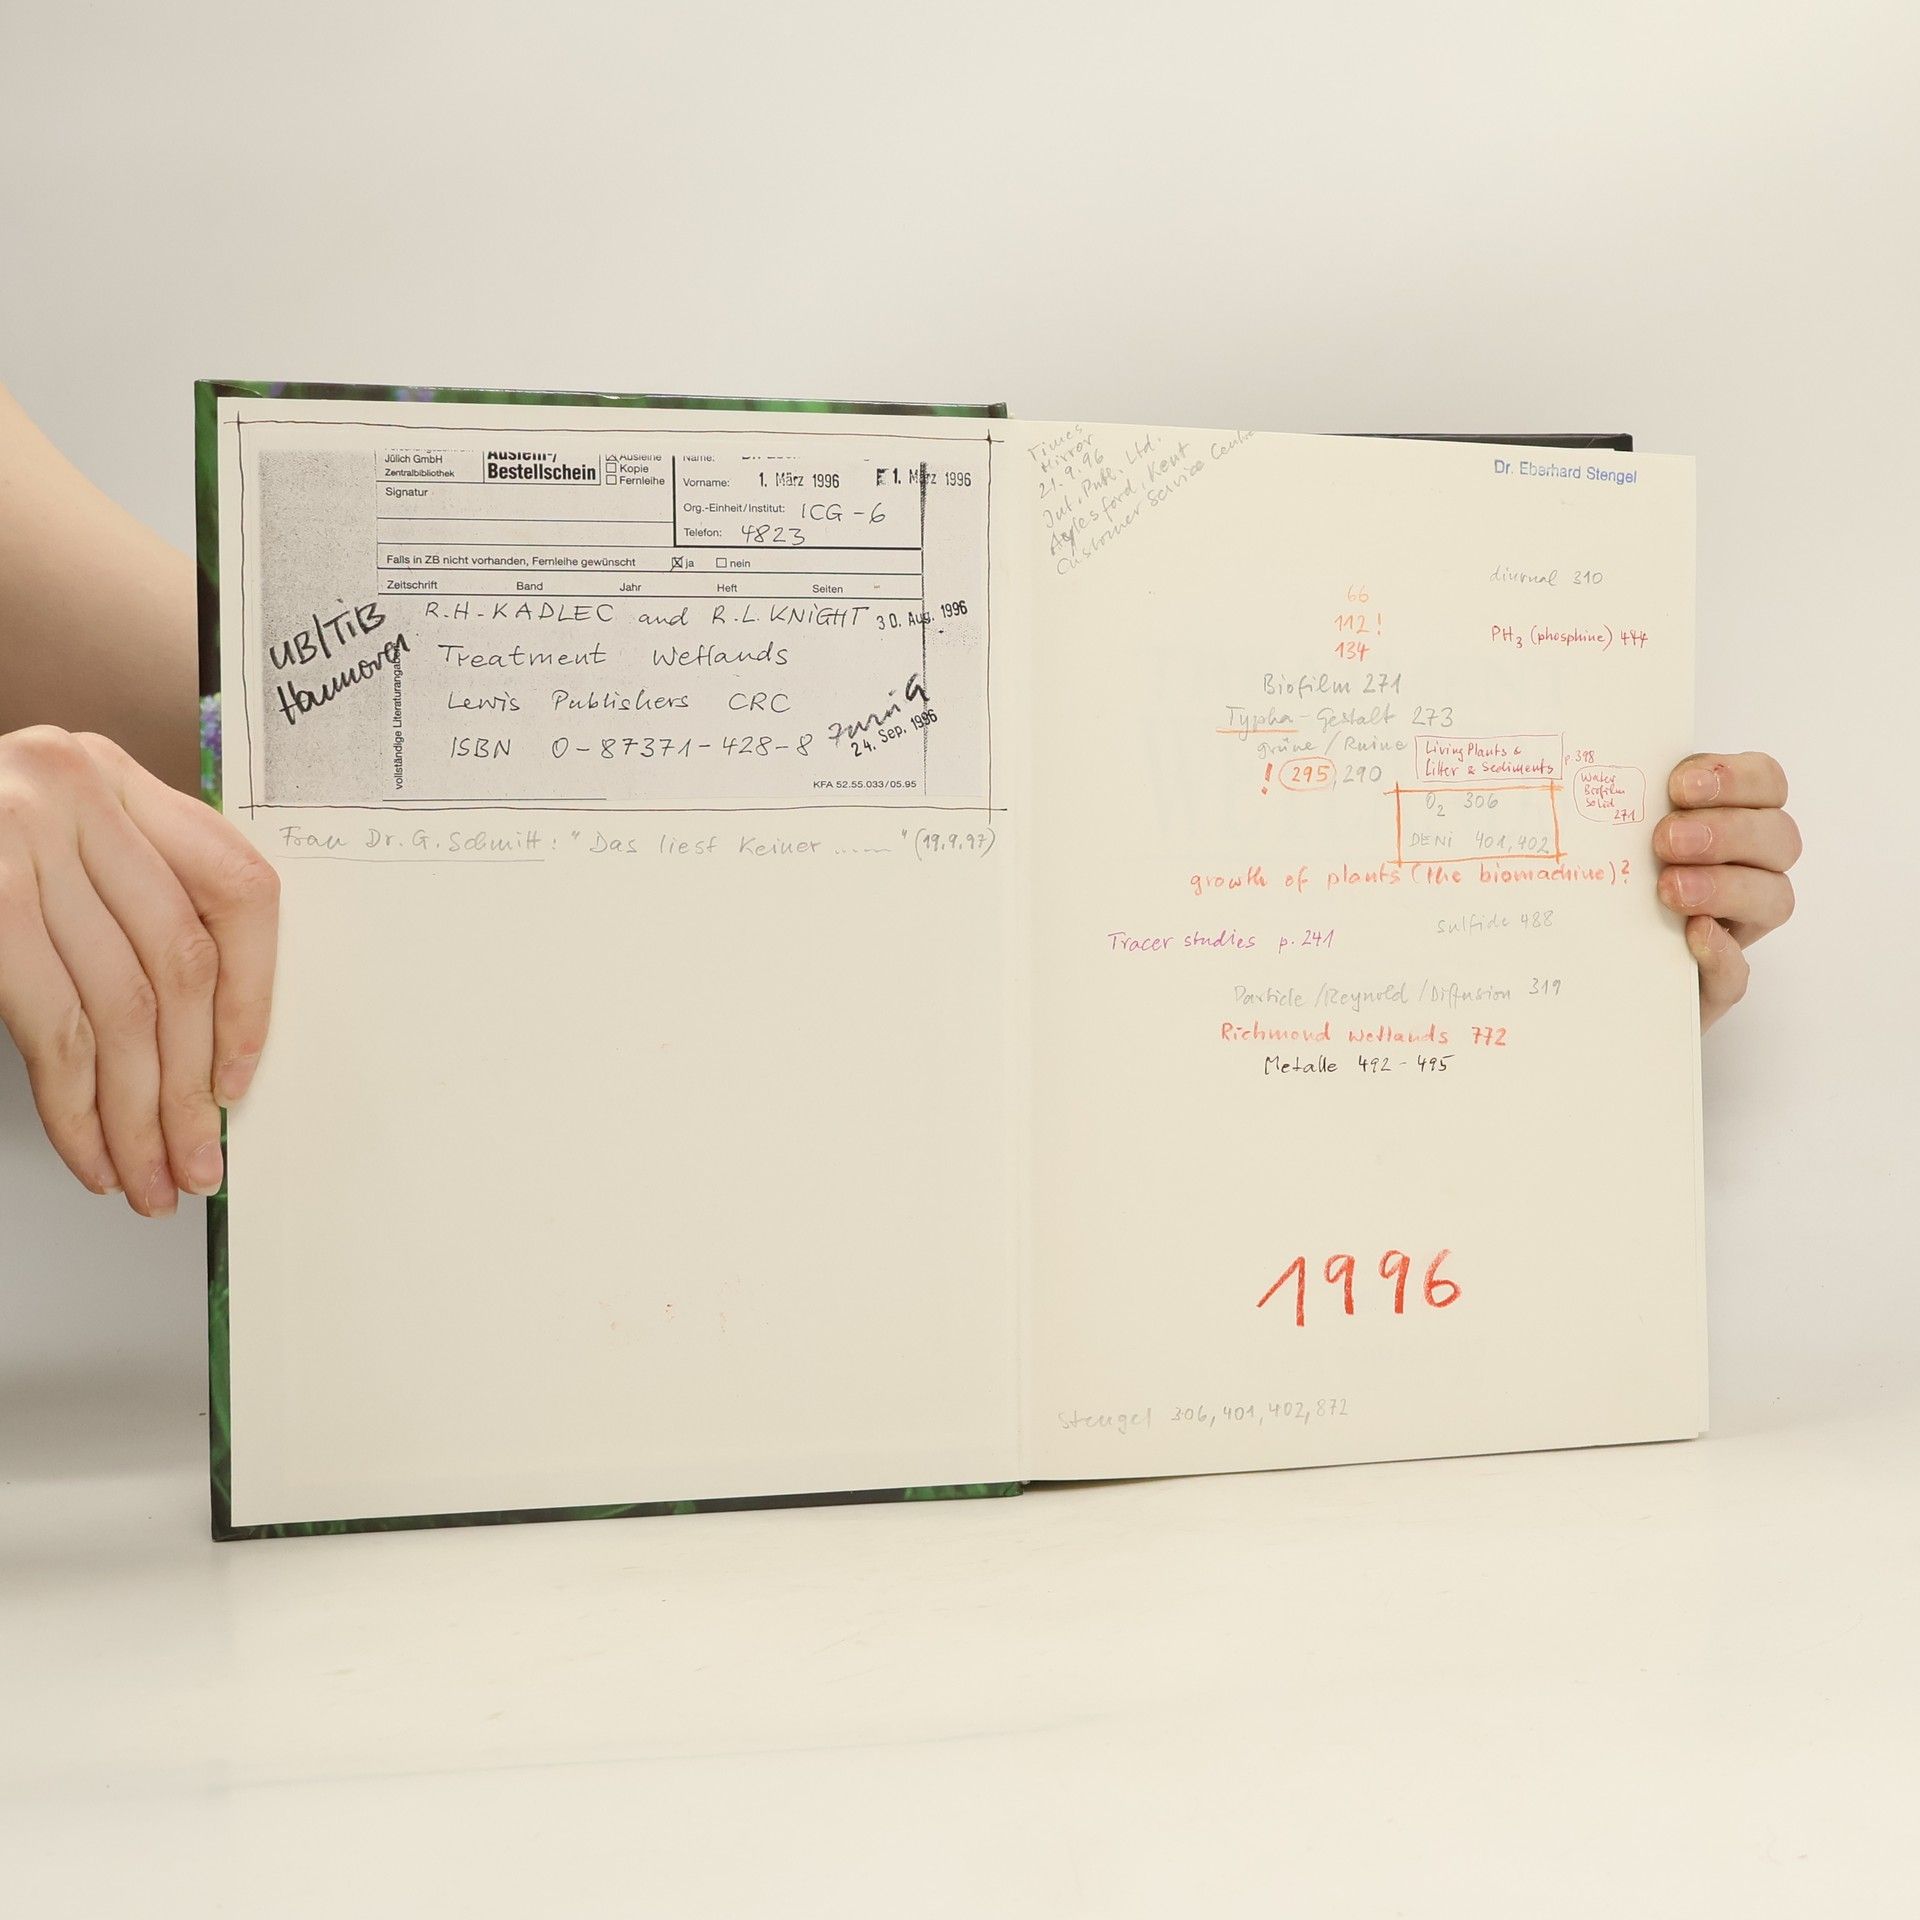 Jülich GmbH
Zentralbibliothek
Ausleih-/
Bestellschein
Ausleihe
Kopie
Fernleihe
Signatur
Name:
Vorname: 1. März 1996 E 1. März 1996
Org.-Einheit/Institut: ICG-6
Telefon: 4823
Falls in ZB nicht vorhanden, Fernleihe gewünscht ja nein
Zeitschrift Band Jahr Heft Seiten
vollständige Literaturangaben
UB/TiB
Hannover
R.H-KADLEC and R.L.KNiGHT 30. Aug. 1996
Treatment Wetlands
Lewis Publishers CRC
ISBN 0-87371-428-8
zurück
24. Sep. 1996
KFA 52.55.033/05.95
Frau Dr. G. Schmitt: "Das liest Keiner ......" (19.9.97)
Times
Mirror
21.9.96
Int. Publ. Ltd.
Aylesford, Kent
Customer Service Centre
Dr. Eberhard Stengel
diurnal 310
66
112!
134
PH3 (phosphine) 444
Biofilm 271
Typha-Gestalt 273
grüne / Ruine
! 295, 290
Living Plants &
Litter & Sediments
p. 398
Water
Biofilm
Solid
271
O2 306
DENi 401, 402
growth of plants (the biomachine)?
sulfide 488
Tracer studies p. 241
Particle /Reynold /Diffusion 319
Richmond wetlands 772
Metalle 492-495
1996
Stengel 306, 401, 402, 872